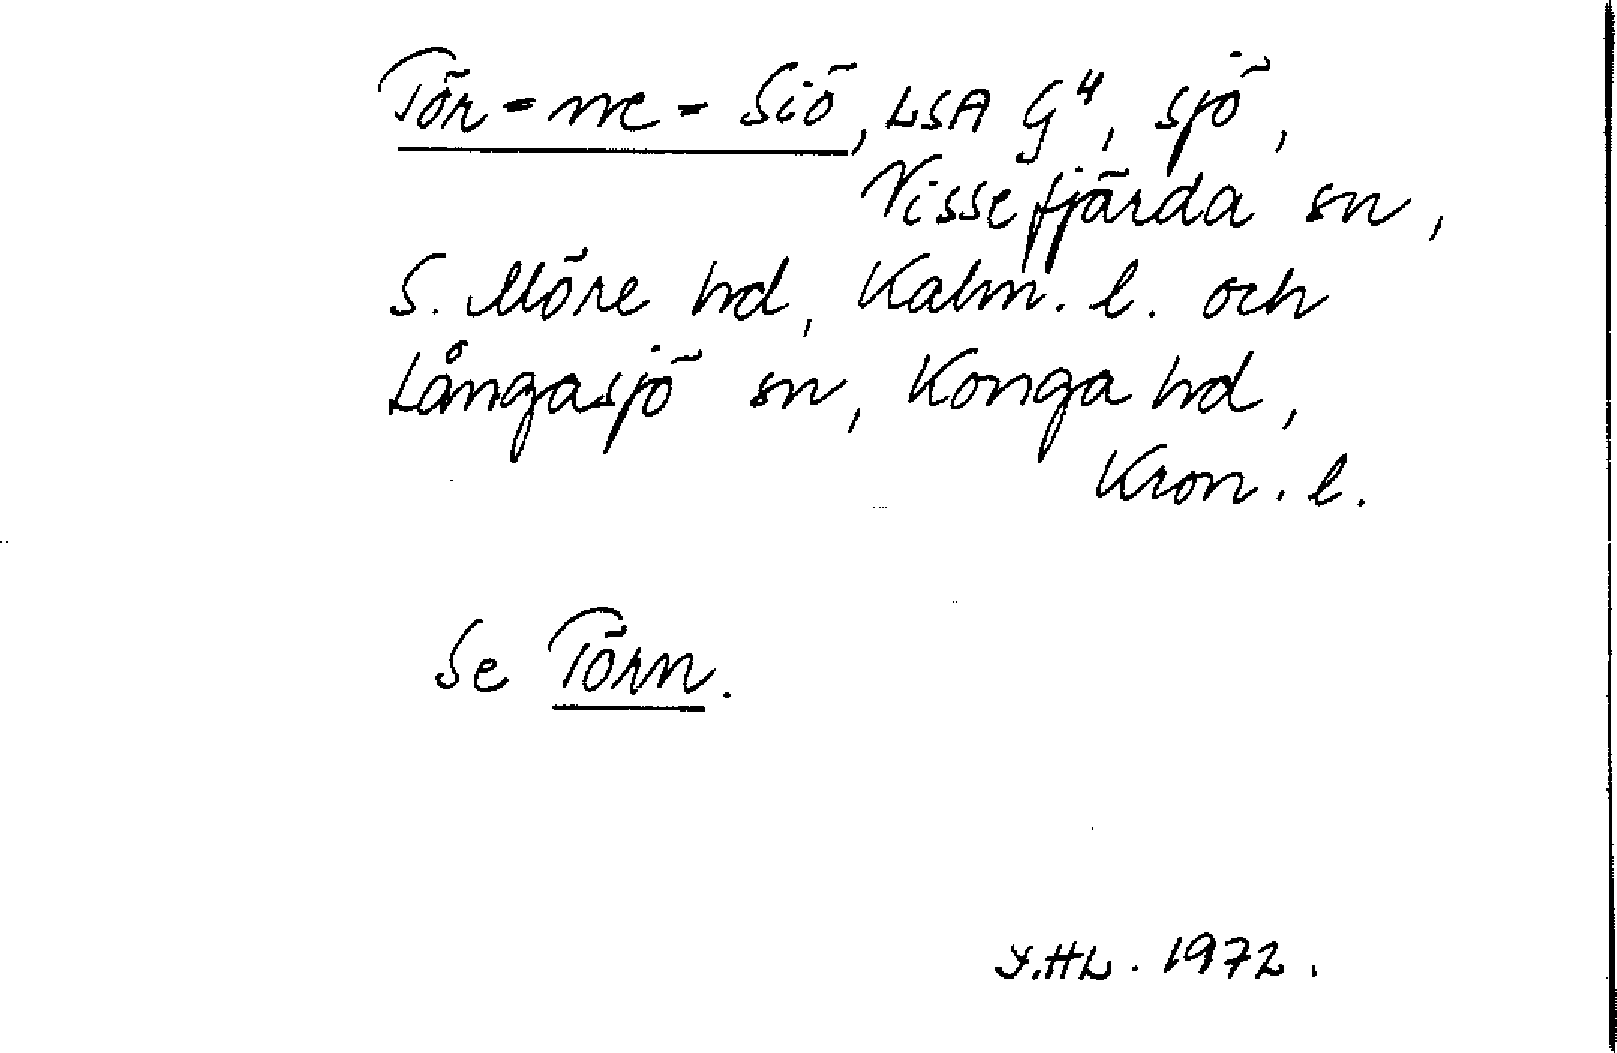 Tör=ne=Siö, LSA G4, sjö,
Vissefjärda sn,
S. Möre hd, Kalm. l. och
Långasjö sn, Konga hd,
Kron. l.
Se Törn.
Y.HL. 1972.